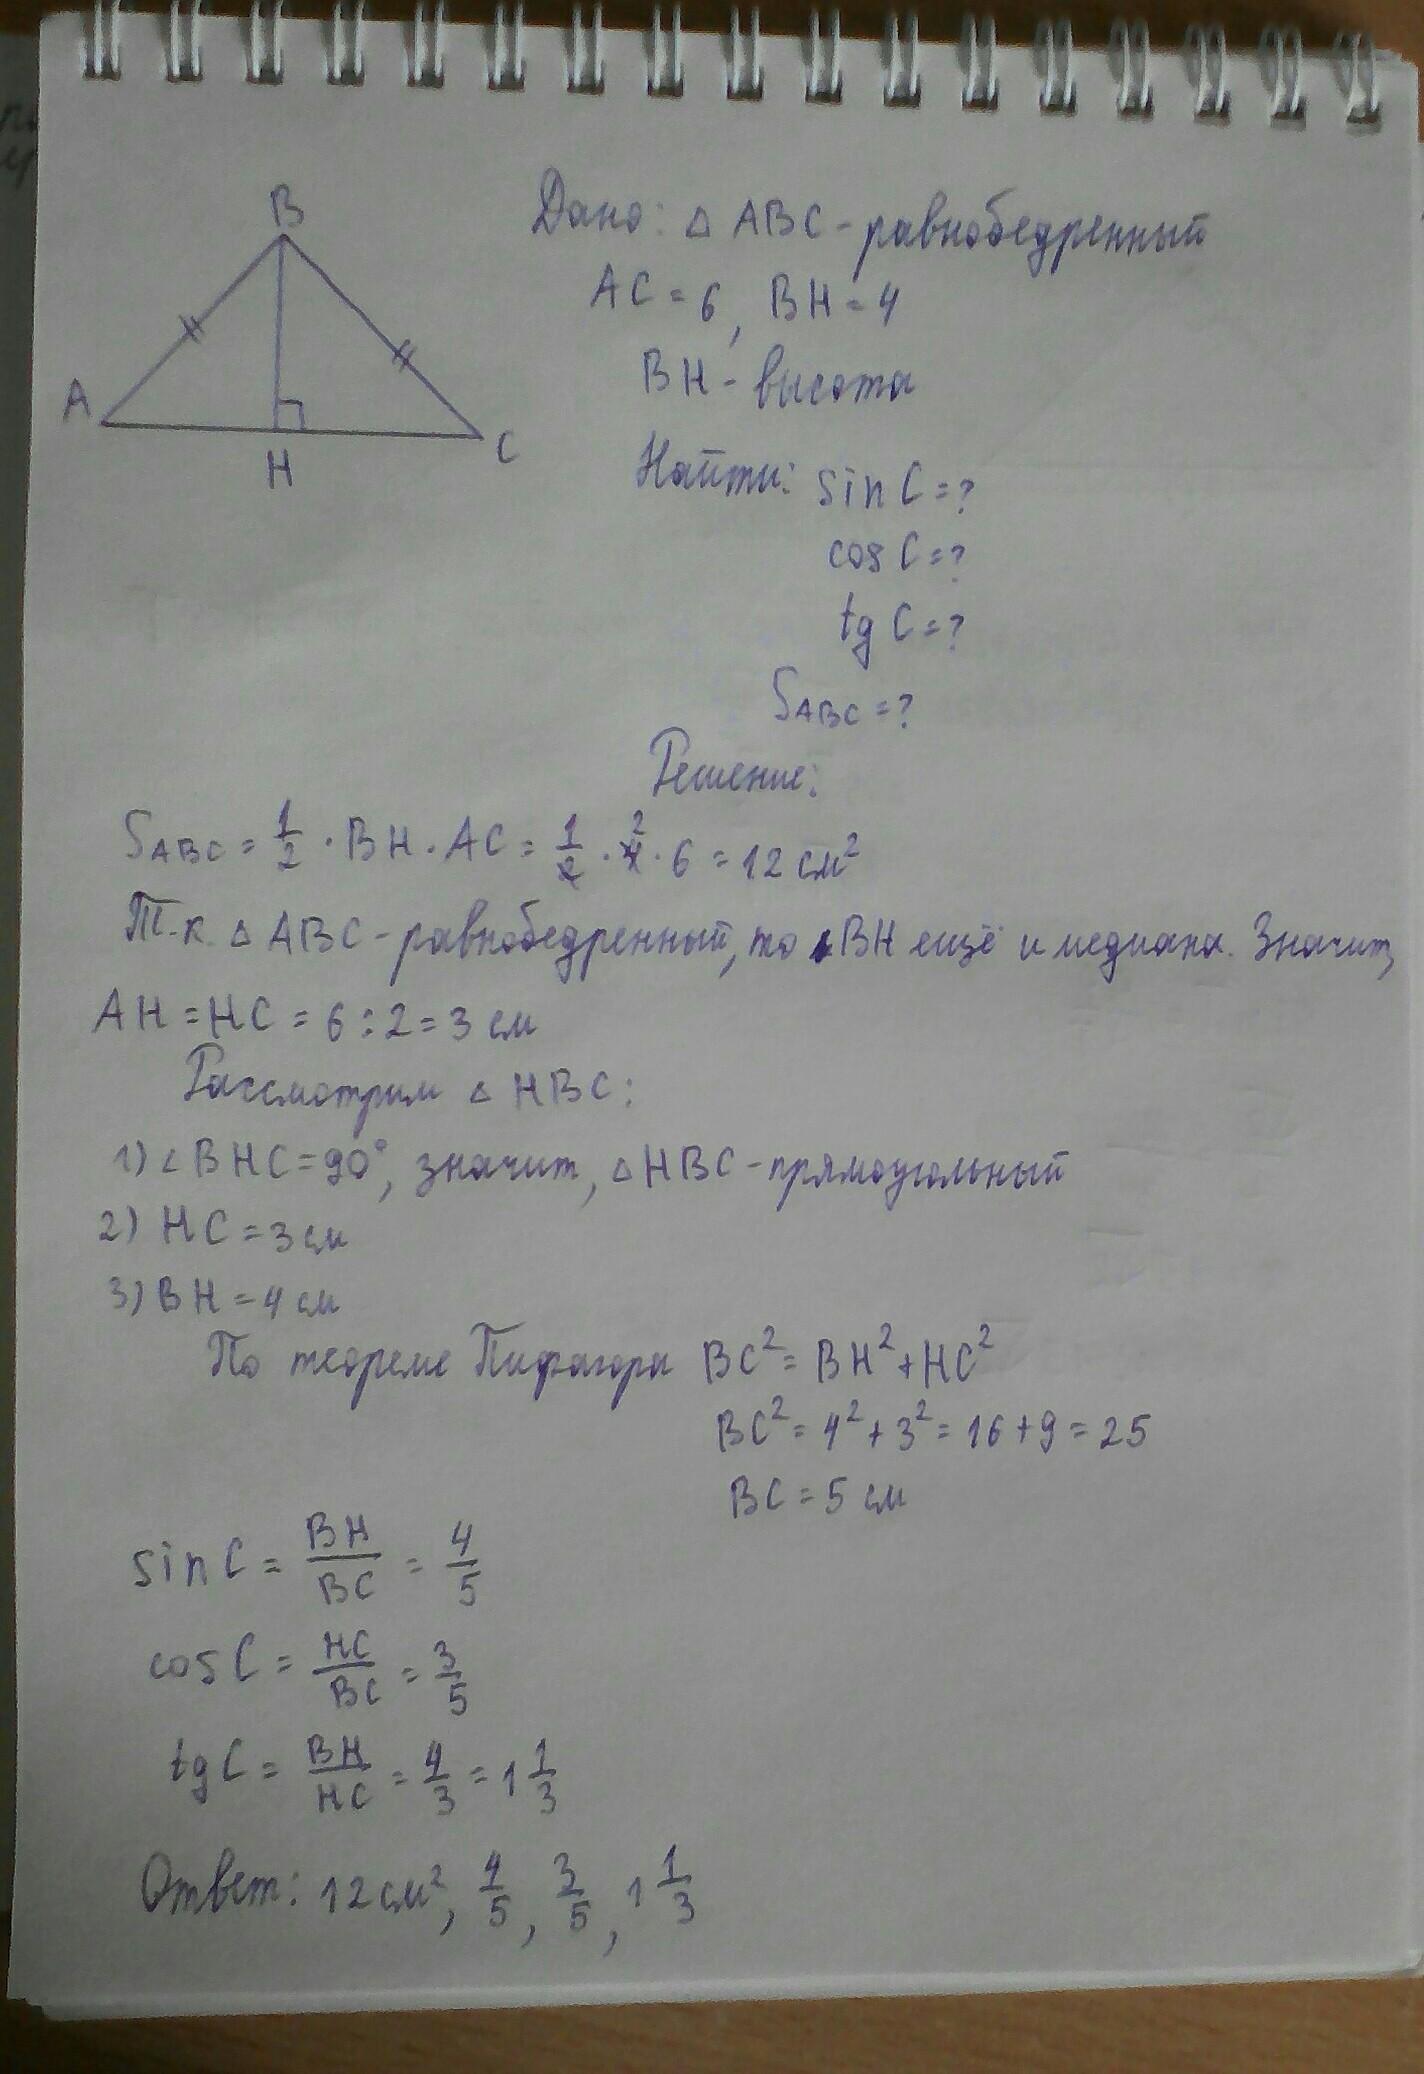 B
A
H
C
Дано: △ ABC - равнобедренный
AC = 6, BH = 4
BH - высота
Найти: sin C = ?
cos C = ?
tg C = ?
S ABC = ?
Решение:
S ABC = 1/2 · BH · AC = 1/2 · 4 2 · 6 = 12 см²
Т.к. △ ABC - равнобедренный, то BH ещё и медиана. Значит,
AH = HC = 6 : 2 = 3 см
Рассмотрим △ HBC:
1) ∠BHC = 90°, значит, △ HBC - прямоугольный
2) HC = 3 см
3) BH = 4 см
По теореме Пифагора BC² = BH² + HC²
BC² = 4² + 3² = 16 + 9 = 25
BC = 5 см
sin C = BH/BC = 4/5
cos C = HC/BC = 3/5
tg C = BH/HC = 4/3 = 1 1/3
Ответ: 12 см², 4/5, 3/5, 1 1/3